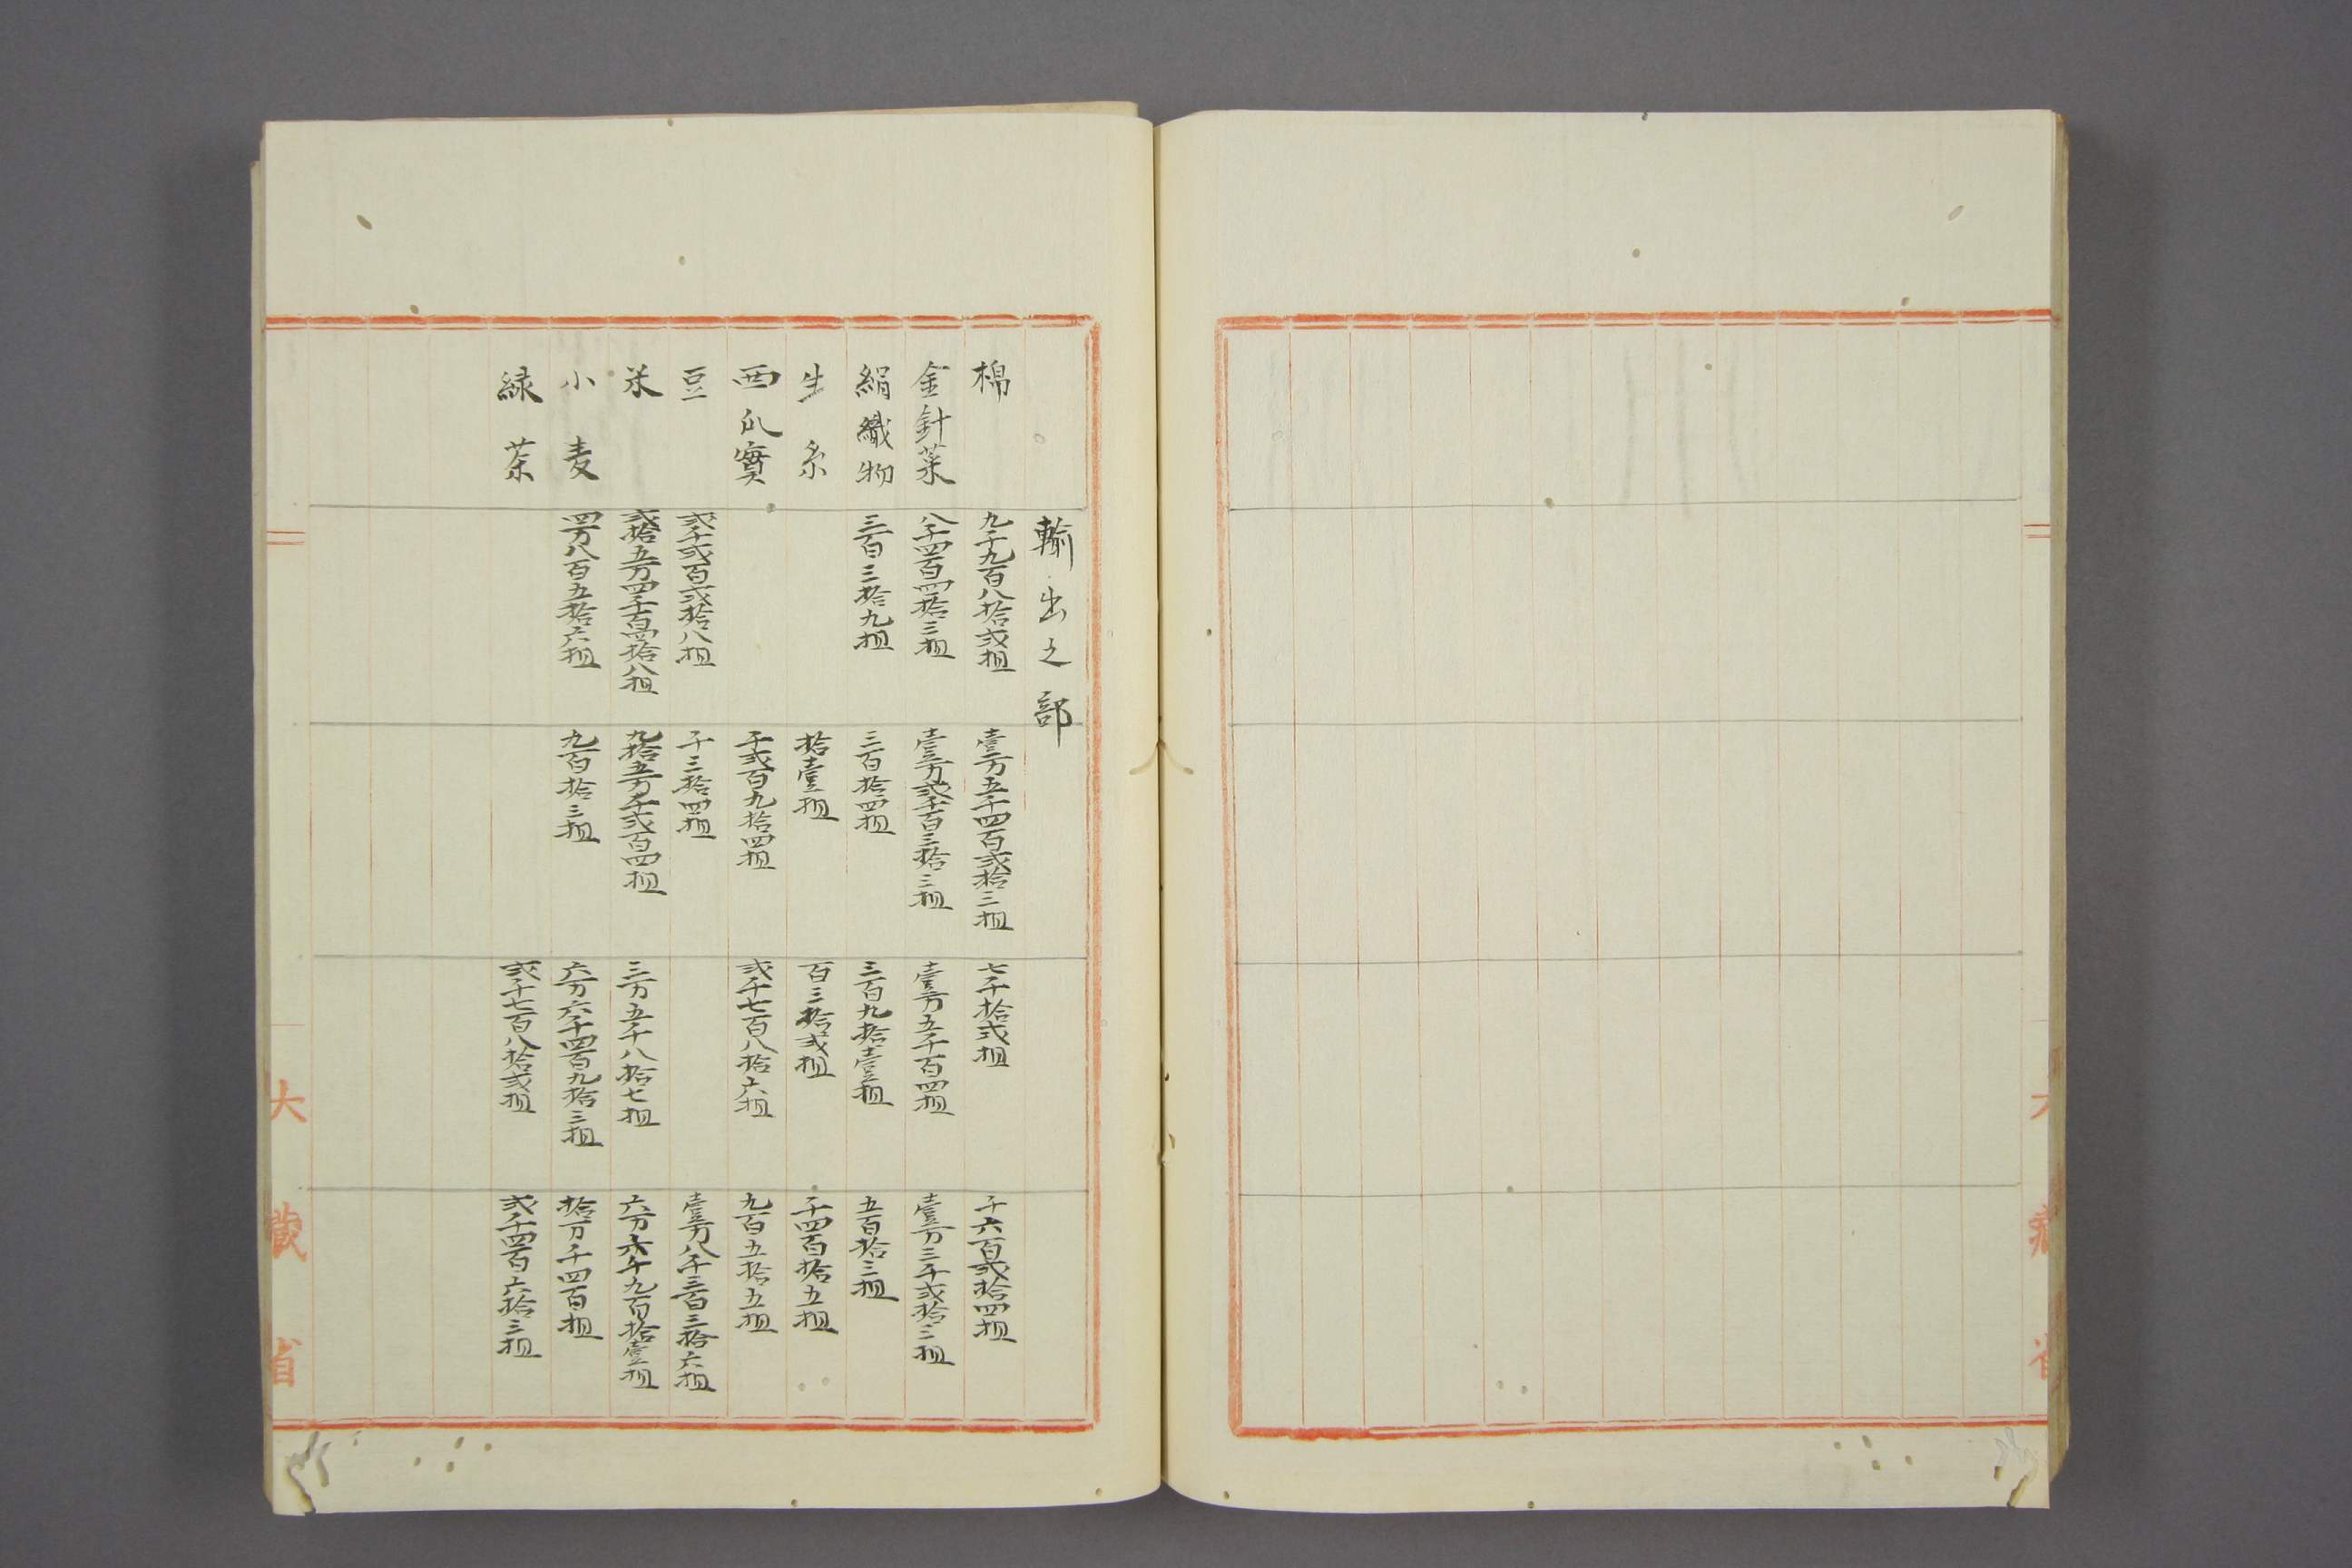 輸出之部
棉 九千九百八拾弐担 壹万五千四百弐拾三担 七千拾弐担 千六百弐拾四担
金針菜 八千四百四拾三担 壹万弐千百三拾三担 壹万五千百四担 壹万三千弐拾三担
絹織物 三百三拾九担 三百拾四担 三百九拾壹担 五百拾三担
生糸 拾壹担 百三拾弐担 千四百拾五担
西瓜實 千弐百九拾四担 弐千七百八拾六担 九百五拾五担
豆 弐千弐百弐拾八担 千三拾四担 壹万八千三百三拾六担
米 弐拾五万四千百四拾八担 九拾五万千弐百四担 三万五千八拾七担 六万六千九百拾壹担
小麦 四万八百五拾六担 九百拾三担 六万六千四百九拾三担 拾万千四百担
緑茶 弐千七百八拾弐担 弐千四百六拾三担
大藏省